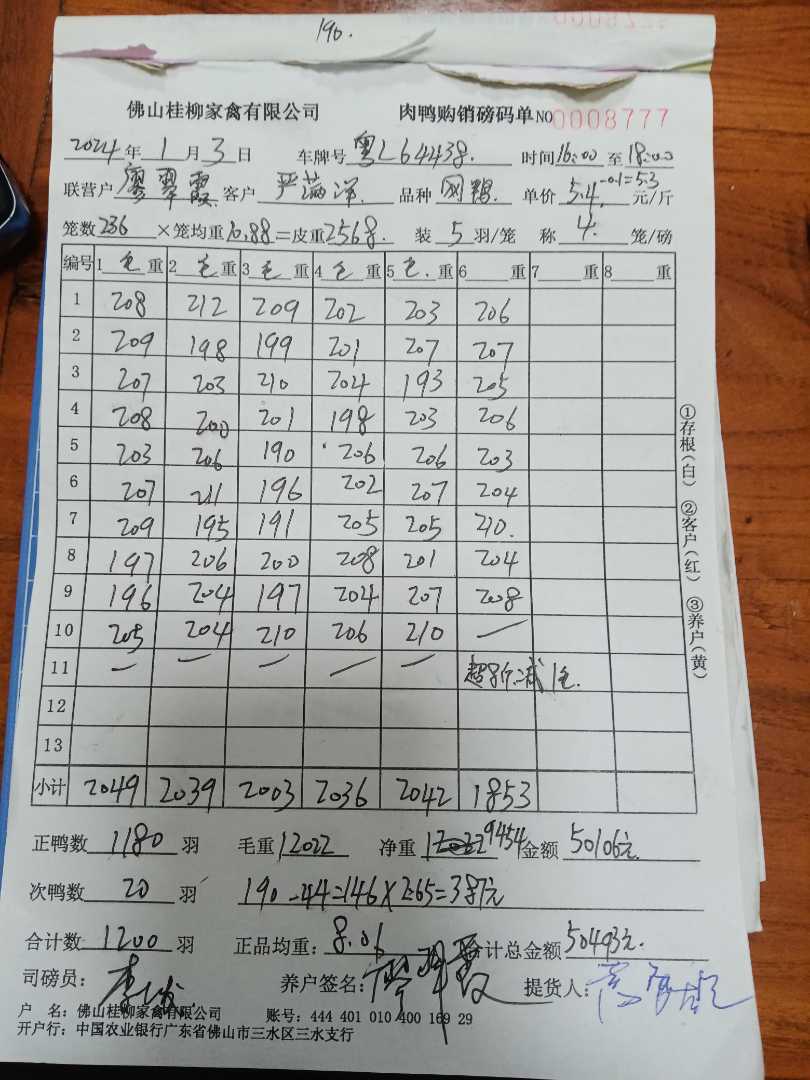 190.
佛山桂柳家禽有限公司 肉鸭购销磅码单 NO 0008777
2024年1月3日 车牌号 粤L64438. 时间16:00至18:00
联营户 廖翠霞 客户 严满洋 品种 单价 5.4 -0.1=5.3 元/斤
笼数236 ×笼均重10.88=皮重2568. 装5羽/笼 称4.笼/磅
编号 1毛重 2毛重 3毛重 4毛重 5毛.重 6 重 7 重 8 重
1 208 212 209 202 203 206
2 209 198 199 201 207 207
3 207 203 210 204 193 205
4 208 200 201 198 203 206
5 203 206 190 206 206 203
6 207 211 196 202 207 204
7 209 195 191 205 205 210.
8 197 206 200 208 201 204
9 196 204 197 204 207 208
10 205 204 210 206 210 —
11 — — — — — 超8斤减1毛.
12
13
小计 2049 2039 2003 2036 2042 1853
①存根(白) ②客户(红) ③养户(黄)
正鸭数1180羽 毛重12022 净重 9454 金额50106元
次鸭数20羽 190-44=146×2.65=387元
合计数1200羽 正品均重:8.06 合计总金额50493元.
司磅员: 养户签名: 提货人:
户 名:佛山桂柳家禽有限公司 账号:444 401 010 400 169 29
开户行:中国农业银行广东省佛山市三水区三水支行